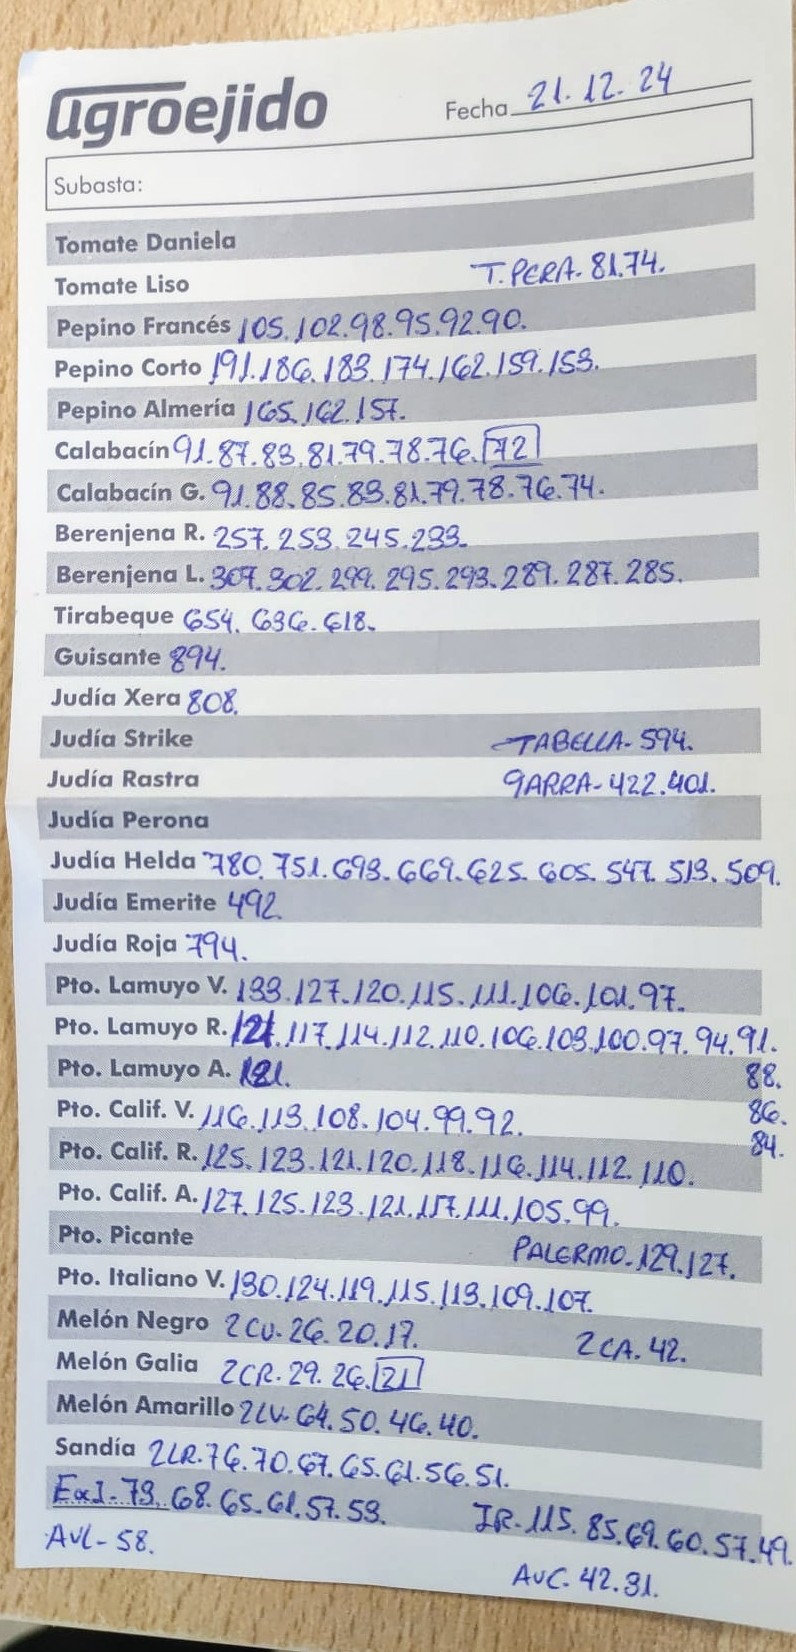 agroejido
Fecha 21.12.24
Subasta:
Tomate Daniela
Tomate Liso T.PERA. 81.74.
Pepino Francés 105.102.98.95.92.90.
Pepino Corto 191.186.183.174.162.159.153.
Pepino Almería 165.162.157.
Calabacín 91.87.83.81.79.78.76.72
Calabacín G. 91.88.85.83.81.79.78.76.74.
Berenjena R. 257.253.245.233.
Berenjena L. 307.302.299.295.293.289.287.285.
Tirabeque 654.636.618.
Guisante 894.
Judía Xera 808.
Judía Strike TABELLA-594.
Judía Rastra GARRA-422.401.
Judía Perona
Judía Helda 780.751.693.669.625.605.547.513.509.
Judía Emerite 492.
Judía Roja 794.
Pto. Lamuyo V. 133.127.120.115.111.106.101.97.
Pto. Lamuyo R. 121.117.114.112.110.106.103.100.97.94.91.
88.
86.
84.
Pto. Lamuyo A. 121.
Pto. Calif. V. 116.113.108.104.99.92.
Pto. Calif. R. 125.123.121.120.118.116.114.112.110.
Pto. Calif. A. 127.125.123.121.117.111.105.99.
Pto. Picante PALERMO.129.127.
Pto. Italiano V. 130.124.119.115.113.109.107.
Melón Negro 2CU.26.20.17. 2CA.42.
Melón Galia 2CR.29.26.21
Melón Amarillo 2LV.64.50.46.40.
Sandía 2LR.76.70.67.65.61.56.51.
ExJ-73.68.65.61.57.53. JR.115.85.69.60.57.49.
AVL-58.
AVC.42.31.